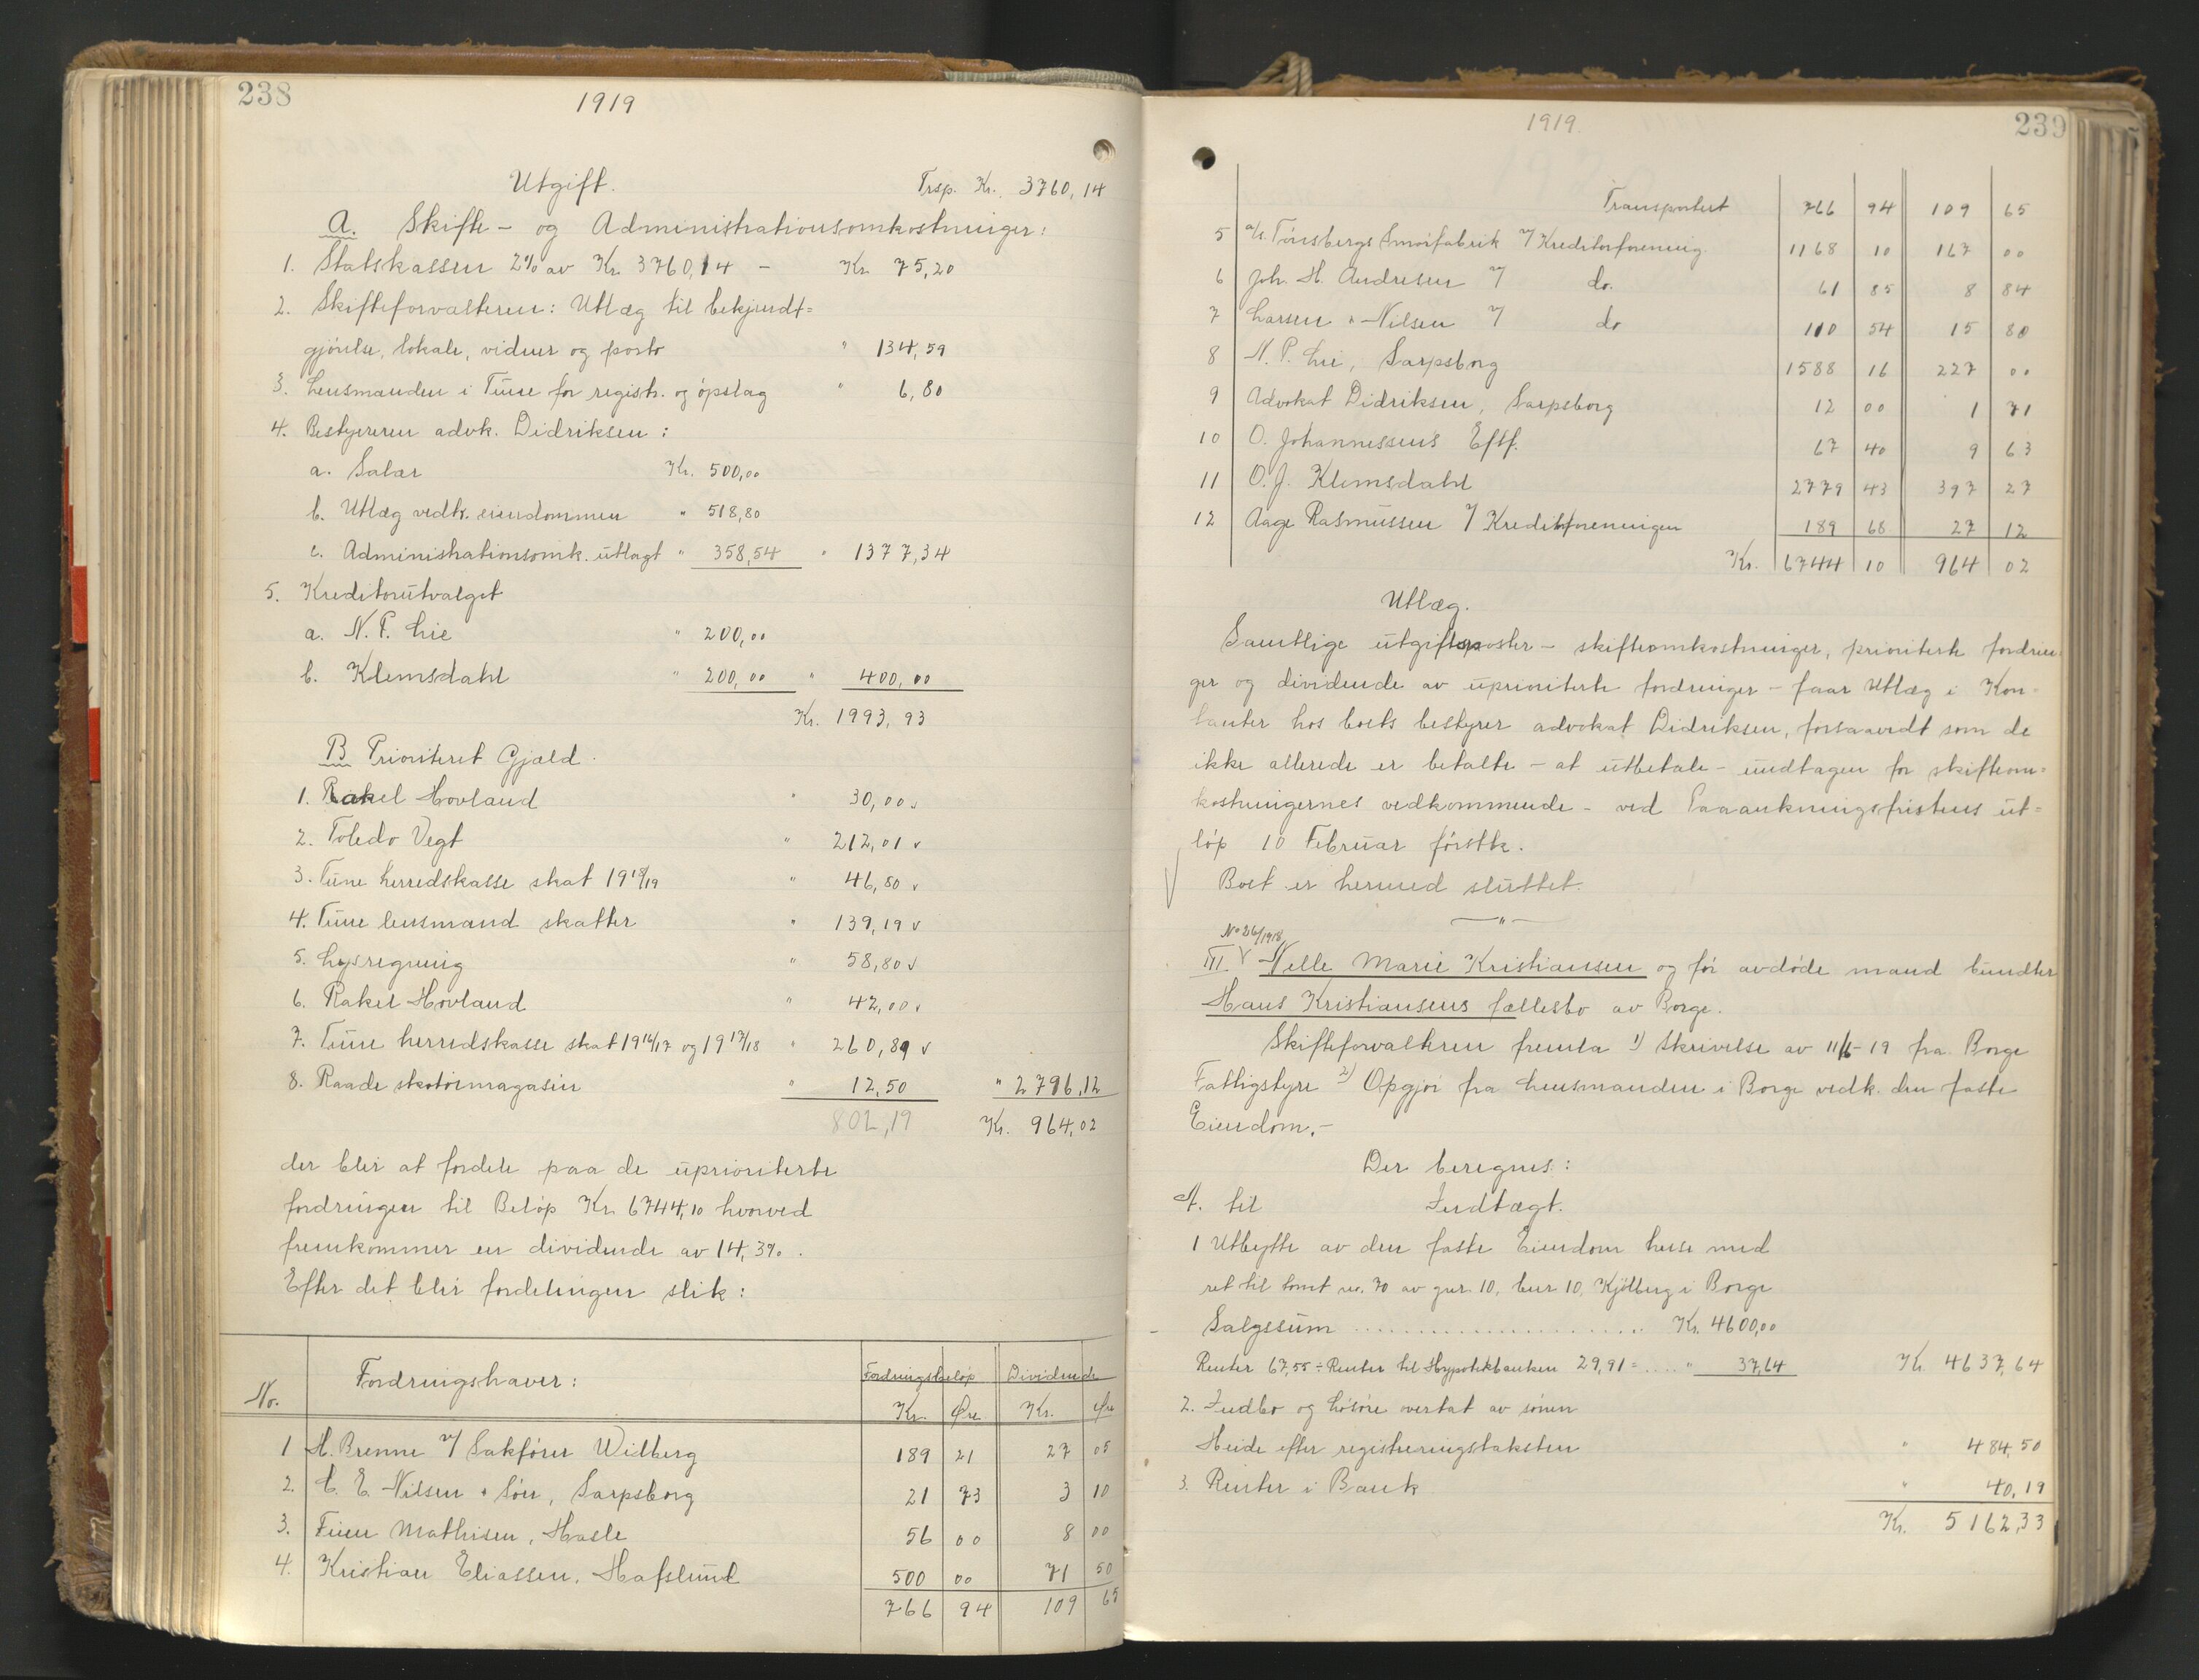 238
1919
Utgift. Trsp. Kr. 3760,14
A. Skifte- og Administrationsomkostninger:
1. Statskassen 2% av Kr. 3760,14 - Kr. 75,20
2. Skifteforvalteren: Utlæg til bekjendt=
gjörelse, lokale, vidner og porto " 134,59
3. Lensmanden i Tune for registr. og opslag " 6,80
4. Bestyreren advk. Didriksen:
a. Salær Kr. 500,00
b. Utlæg vedk. eiendommen " 518,80
c. Administrationsomk. utlagt " 358,54 " 1377,34
5. Kreditorutvalget
a. N. P. Lie " 200,00
b. Klemsdahl " 200,00 " 400,00
Kr. 1993,93
B Prioritert Gjæld.
1. Rakel Hovland " 30,00 v
2. Toledo Vegt " 212,01 v
3. Tune herredskasse skat 1918/19 " 46,80 v
4. Tune lensmand skatter " 139,19 v
5. Lysregning " 58,80 v
6. Rakel Hovland " 42,00 v
7. Tune herredskasse skat 1916/17 og 1917/18 " 260,89 v
8. Raade skotöimagasin " 12,50 " 2796,12
802,19 Kr. 964,02
der blir at fordele paa de uprioriterte
fordringer til Belöp Kr. 6744,10 hvorved
fremkommer en dividende av 14,3%.
Efter det blir fordelingen slik:
No. Fordringshaver: Fordringsbelöp Dividende
Kr. Øre Kr. Øre
1 H. Brenne v/ Sakförer Widberg 189 21 27 05
2. C. E. Nilsen & Sön, Sarpsborg 21 73 3 10
3. Finn Mathisen, Hasle 56 00 8 00
4. Kristian Eliassen, Hafslund 500 00 71 50
766 94 109 65
239
1919.
Transportert 766 94 109 65
5 a/s. Tönsbergs Smörfabrik v/ Kreditorforening 1168 10 167 00
6 Joh. H. Andresen v/ do. 61 85 8 84
7 Larsen & Nilsen v/ do 110 54 15 80
8 N. P. Lie, Sarpsborg 1588 16 227 00
9 Advokat Didriksen, Sarpsborg 12 00 1 71
10 O. Johannessens Eftf. 67 40 9 63
11 O. J. Klemsdahl 2779 43 397 27
12 Aage Rasmussen v/ Kreditorforeningen 189 68 27 12
Kr. 6744 10 964 02
Utlæg.
Samtlige utgiftsposter - skifteomkostninger, prioriterte fordrin
ger og dividende av uprioriterte fordringer - faar Utlæg i Kon=
tanter hos boets bestyrer advokat Didriksen, forsaavidt som de
ikke allerede er betalte - at utbetale - undtagen for skifteom=
kostningernes vedkommende - ved Paaankningsfristens ut=
löp 10 Februar förstk.
Boet er hermed sluttet.
—"—
No 26/1918
III. v Nelle Marie Kristiansen og för avdöde mand Gundter
Hans Kristiansens fællesbo av Borge.
Skifteforvalteren fremla 1) Skrivelse av 11/6-19 fra Borge
Fattigstyre 2) Opgjör fra Lensmanden i Borge vedk. den faste
Eiendom.-
Der beregnes:
A. til Indtægt.
1 Utbytte av den faste Eiendom huse med
ret til tomt nr. 70 av gnr. 10, bnr 10, Kjölberg i Borge
Salgssum .......................... Kr. 4600,00
Renter 67,55 ÷ Renter til Hypotekbanken 29,91 = .... " 37,64 Kr. 4637,64
2. Indbo og Lösöre overtat av sönnen
Heide efter registreringstaksten " 484,50
3. Renter i Bank " 40,19
Kr. 5162,33